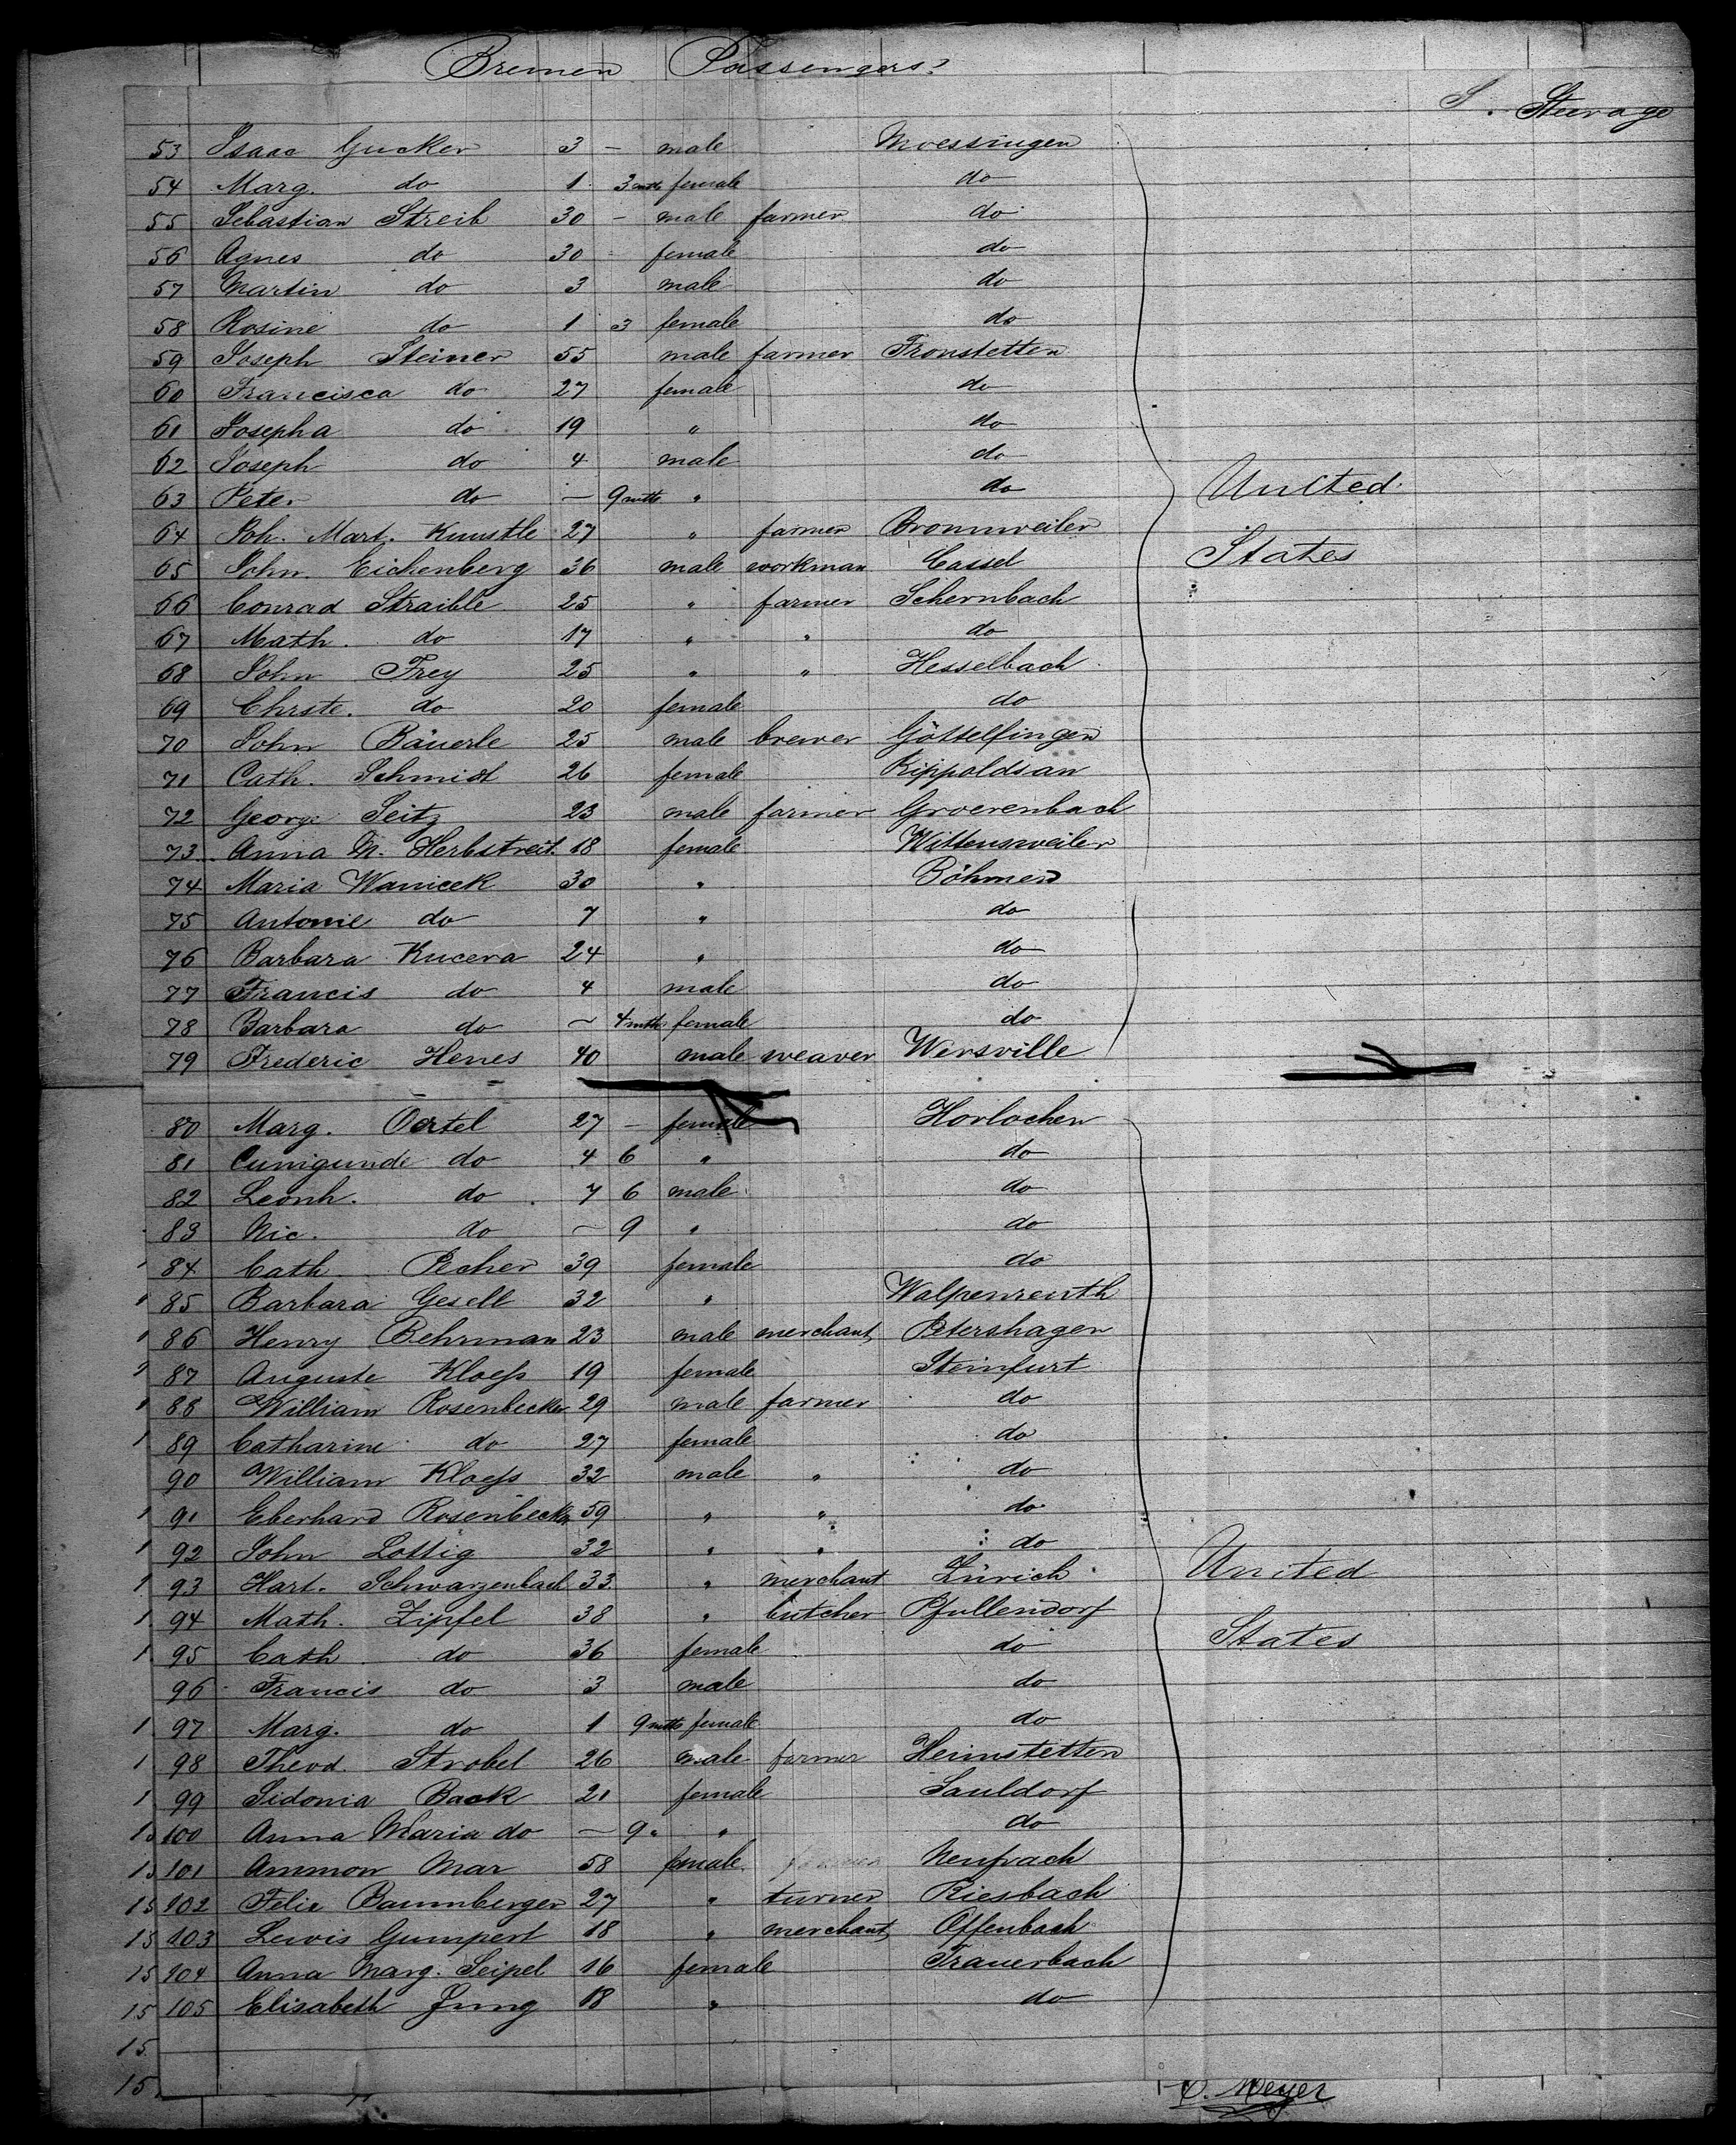 Bremen Passengers
Steerage
53 Isaac Gucker 3 – male Moessingen
54 Marg. do 1 3 mths female do
55 Sebastian Streib 30 – male farmer do
56 Agnes do 30 female do
57 Martin do 3 male do
58 Rosine do 1 3 female do
59 Joseph Steiner 55 male farmer Fronstetten
60 Francisca do 27 female do
61 Josepha do 19 " do
62 Joseph do 4 male do
63 Peter do – 9 mths " do
United
64 Joh. Mart. Kunstle 27 " farmer Bronnweiler
65 John Eichenberg 36 male workman Cassel
States
66 Conrad Straible 25 " farmer Schernbach
67 Math. do 17 " " do
68 John Frey 25 " " Hesselbach
69 Chrste. do 20 female do
70 John Bäuerle 25 male brewer Göttelfingen
71 Cath. Schmidt 26 female Rippoldsau
72 George Seitz 23 male farmer Groerenbach
73 Anna M. Herbstreit 18 female Wittensweiler
74 Maria Wanicek 30 " Böhmen
75 Antonie do 7 " do
76 Barbara Kucera 24 " do
77 Francis do 4 male do
78 Barbara do – 4 mths female do
79 Frederic Henes 40 male weaver Wersville
80 Marg. Oertel 27 – female Horlachen
81 Cunigunde do 4 6 " do
82 Leonh. do 7 6 male do
83 Nic. do – 9 " do
84 Cath. Pecher 39 female do
85 Barbara Gesell 32 " Walpenreuth
86 Henry Behrman 23 male merchant Petershagen
87 Auguste Kloess 19 female Steinfurt
88 William Rosenbecker 29 male farmer do
89 Catharine do 27 female do
90 William Kloess 32 male " do
91 Eberhard Rosenbecker 59 " " do
92 John Lottig 32 " " do
United
93 Hart. Schwarzenbach 33 " merchant Zürich
94 Math. Zipfel 38 " butcher Pfullendorf
States
95 Cath do 36 female do
96 Francis do 3 male do
97 Marg. do 1 9 mths female do
98 Theod. Strobel 26 male farmer Heinstetten
99 Sidonia Back 21 female Sauldorf
100 Anna Maria do – 9 " " do
101 Ammon Mar 58 female Neufrach
102 Felix Baumberger 27 " turner Riesbach
103 Lewis Gumpert 18 " merchant Offenbach
104 Anna Marg. Seipel 16 female Trauerbach
105 Elisabeth Jung 18 " do
15
15
Meyer